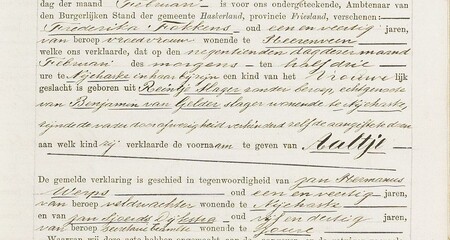 dag der maand Februari is voor ons ondergeteekende, Ambtenaar van
den Burgerlijken Stand der gemeente Haskerland, provincie Friesland, verschenen:
Frederika Fokkens oud een en veertig jaren,
van beroep vroedvrouw wonende te Heerenveen
welke ons verklaarde, dat op den negentienden dag dezer maand
Februari des morgens ten half drie
ure te Nijehaske in haar bijzijn een kind van het Vrouwelijk
geslacht is geboren uit Reintje Slager zonder beroep echtgenoote
van Benjamin van Gelder slager wonende te Nijehaske
zijnde de vader door afwezigheid verhinderd zelf de aangifte te doen
aan welk kind zij verklaarde de voornaam te geven van Aaltje
De gemelde verklaring is geschied in tegenwoordigheid van Jan Hermanus
Werps oud een en veertig jaren,
van beroep veldwachter wonende te Nijehaske
en van Jan Sjoerds Dijkstra oud vijf en dertig jaren,
van beroep wonende te Joure